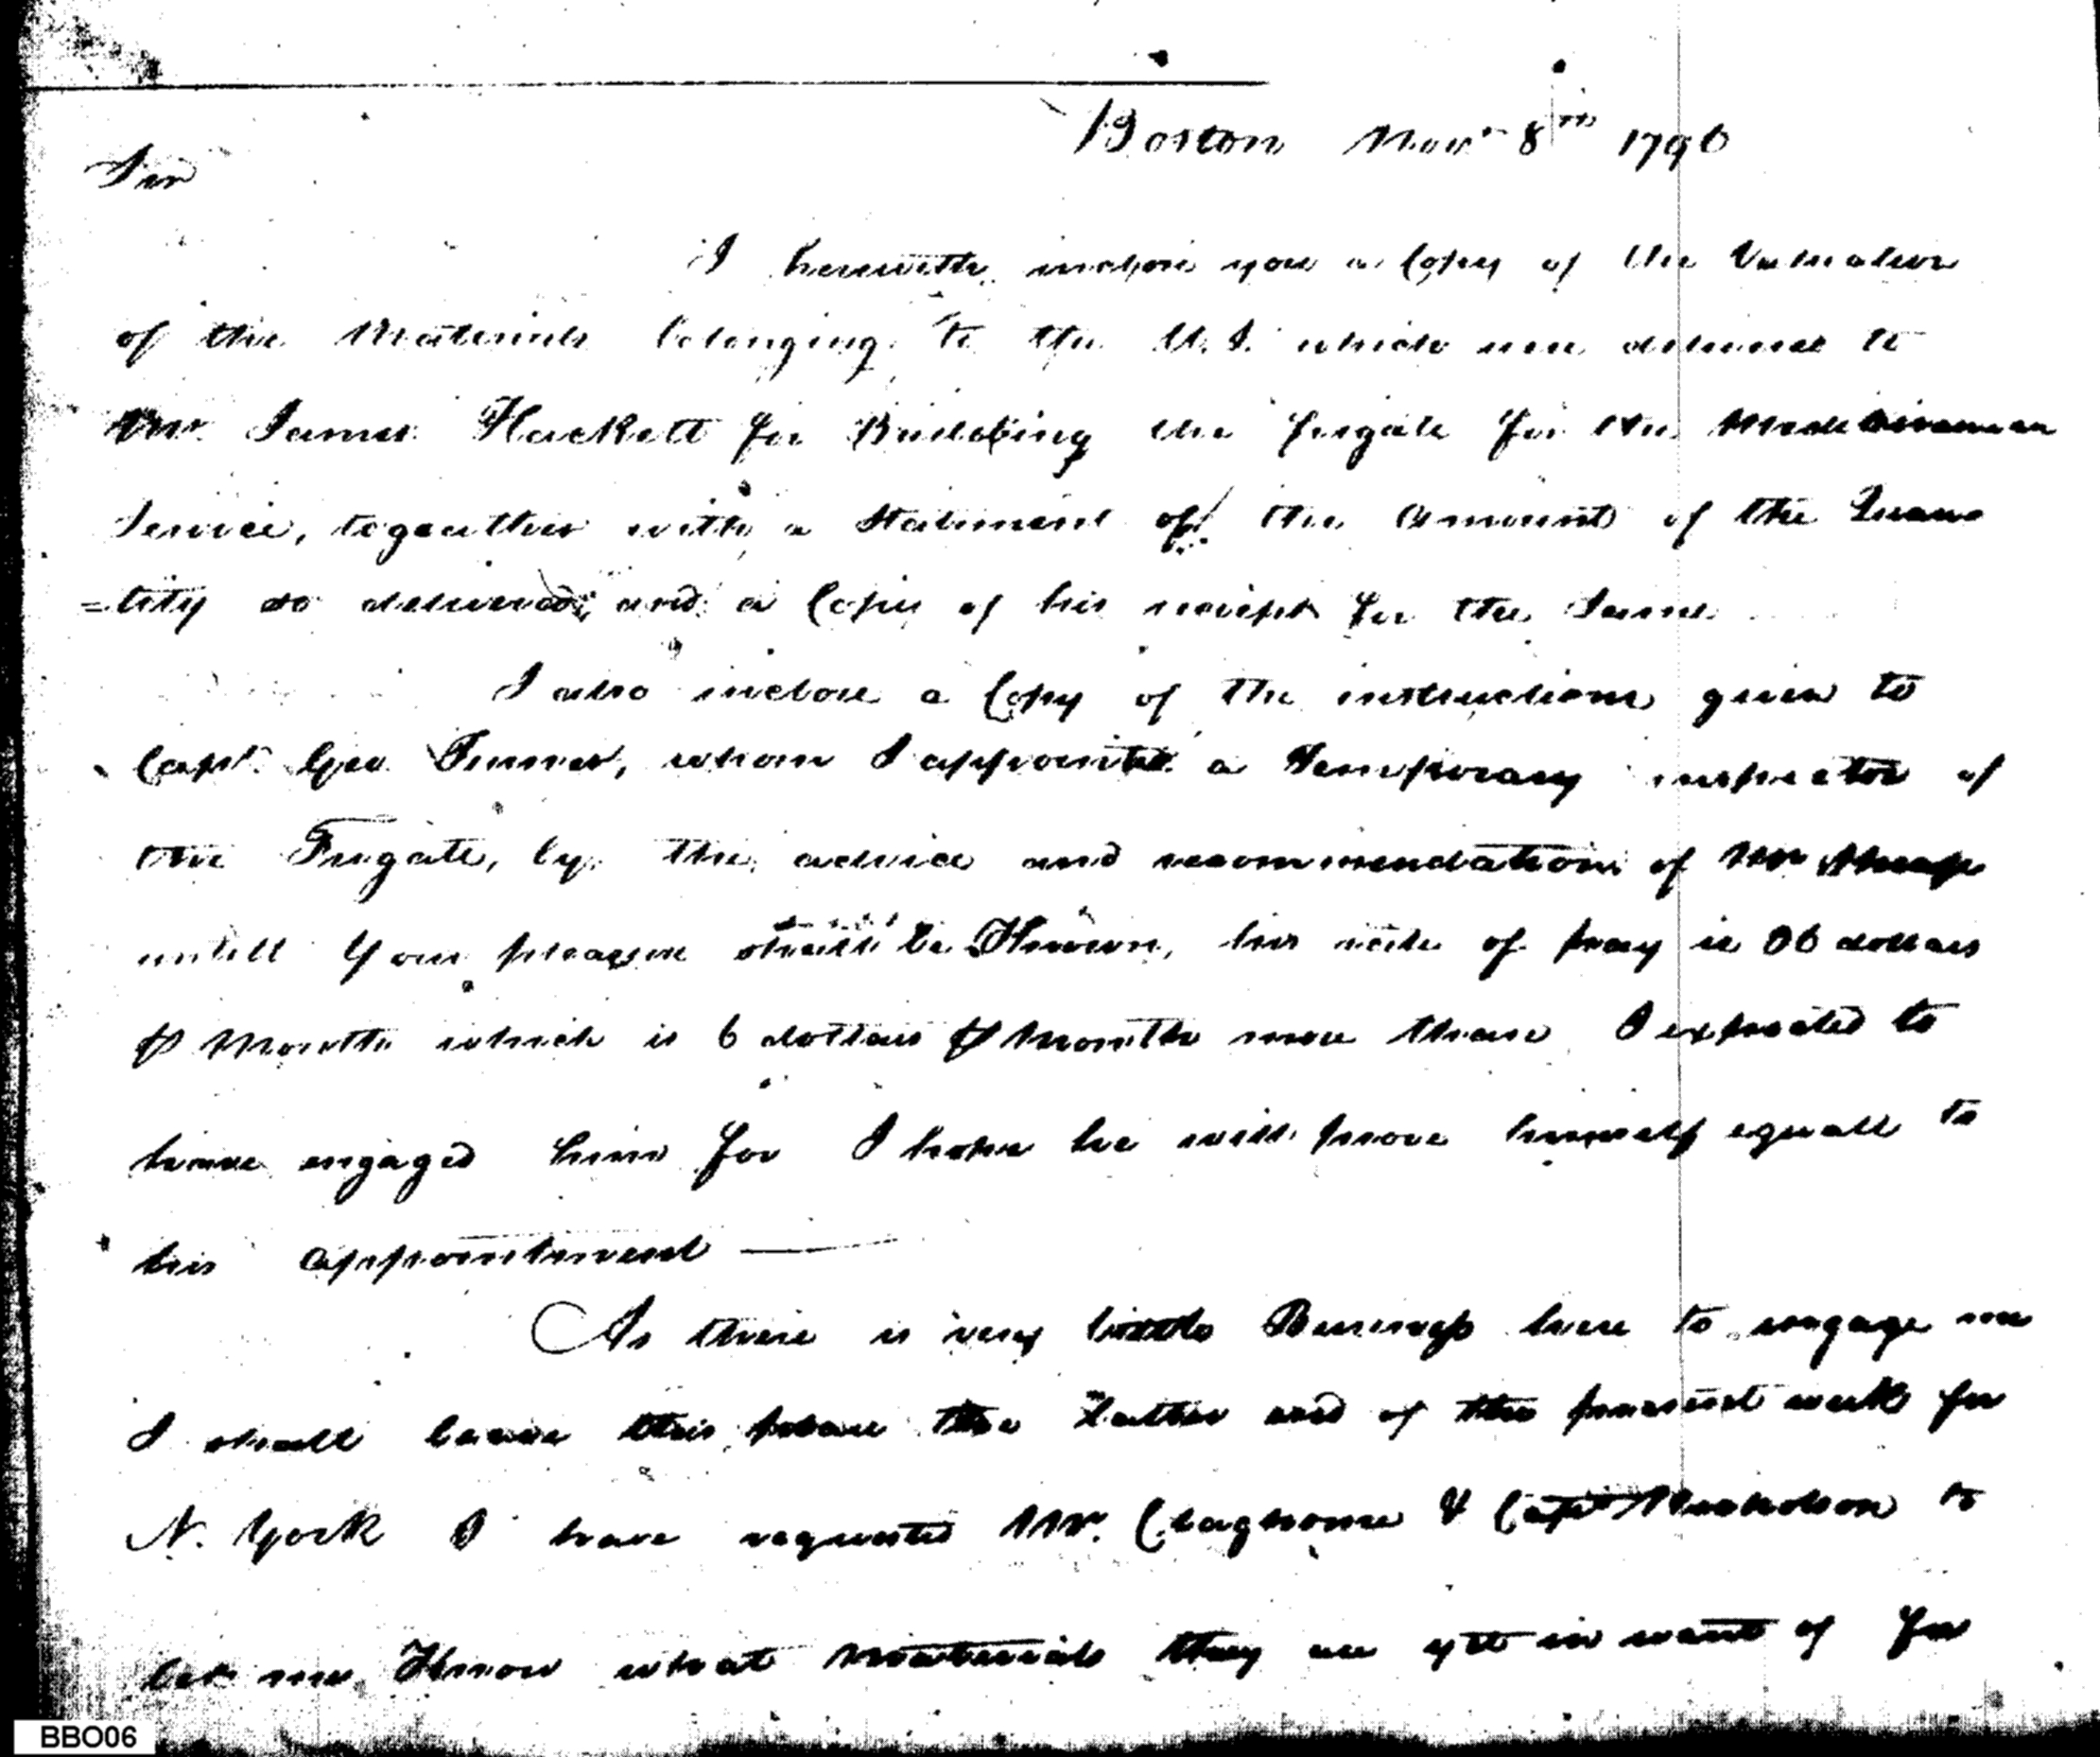 Boston Novr 8th 1796
Sir
I herewith inclose you a Copy of the Valuation
of the Materials belonging to the U.S. which were delivered to
Mr James Hackett for Building the frigate for the Mediteranean
Service, togeather with a Statement of the Amount of the Quan
=tity so delivered, and a Copy of his receipt for the Same
I also inclose a Copy of the instructions given to
Capt. Geo. Turner, whom I appointed a Temporary inspector of
the Frigate, by the advice and recommendation of Mr Sheafe
untill Your pleasure shall be Known, his rate of pay is 36 dollars
⅌ Month which is 6 dollars ⅌ Month more than I expected to
have engaged him for I hope he will prove himself equall to
his appointment
As there is very little Business here to engage me
I shall leave this place the Latter end of the present week for
N. York I have requested Mr. Claghorne & Capt Nicholson to
let me Know what Materials they are yett in want of for
BBO06